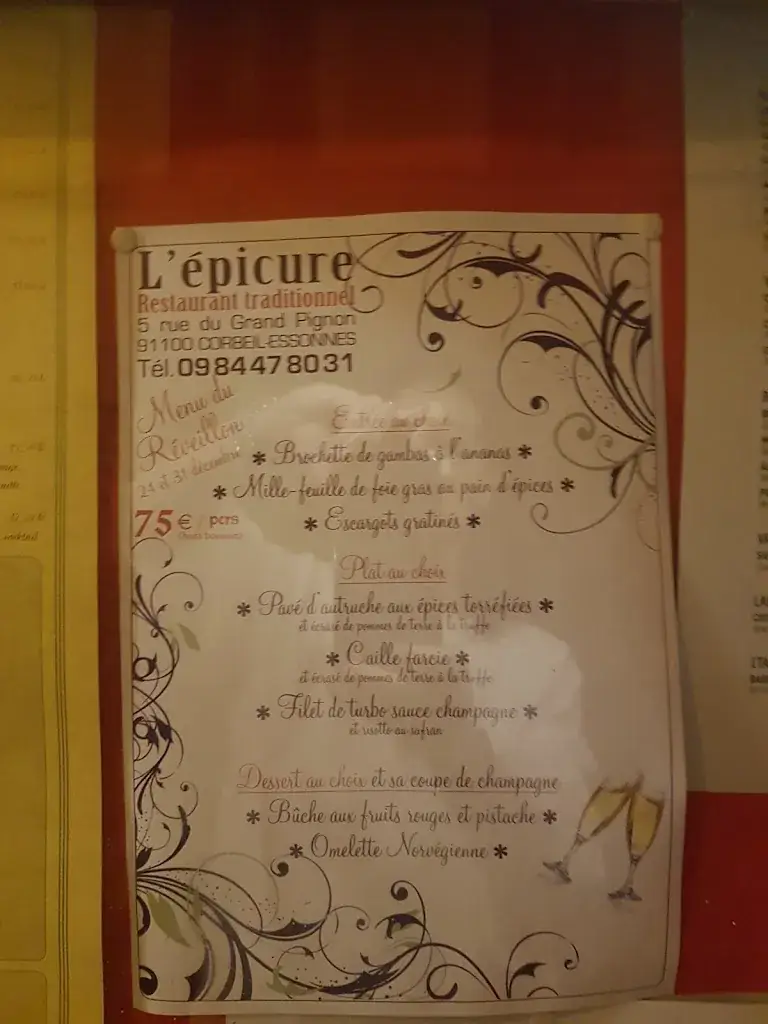 L'épicure
Restaurant traditionnel
5 rue du Grand Pignon
91100 CORBEIL-ESSONNES
Tél. 09 84 47 80 31
Menu du
Réveillon
24 et 31 décembre
75 € / pers
Entrée au choix
* Brochette de gambas à l'ananas *
* Mille-feuille de foie gras au pain d'épices *
* Escargots gratinés *
Plat au choix
* Pavé d'autruche aux épices torréfiées *
et écrasé de pommes de terre à la truffe
* Caille farcie *
et écrasé de pommes de terre à la truffe
* Filet de turbo sauce champagne *
et risotto au safran
Dessert au choix et sa coupe de champagne
* Bûche aux fruits rouges et pistache *
* Omelette Norvégienne *